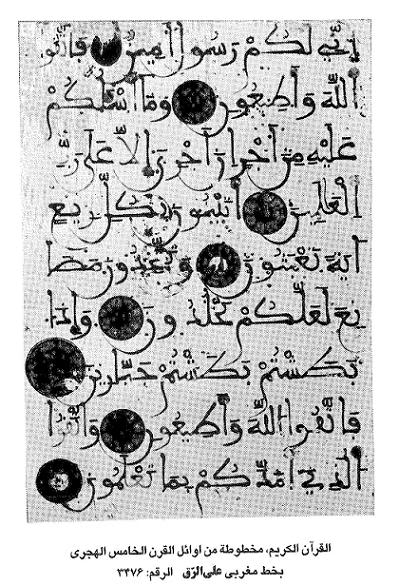 إِنِّي لَكُمْ رَسُولٌ أَمِينٌ فَاتَّقُو
اللَّهَ وَأَطِيعُونِ وَمَا أَسْـَٔلُكُمْ
عَلَيْهِ مِنْ أَجْرٍ إِنْ أَجْرِيَ إِلَّا عَلَى رَبِّ
الْعَٰلَمِينَ أَتَبْنُونَ بِكُلِّ رِيعٍ
ءَايَةً تَعْبَثُونَ وَتَتَّخِذُونَ مَصَا
نِعَ لَعَلَّكُمْ تَخْلُدُونَ وَإِذَا
بَطَشْتُم بَطَشْتُمْ جَبَّارِينَ
فَاتَّقُوا اللَّهَ وَأَطِيعُونِ وَاتَّقُوا
الَّذِي أَمَدَّكُمْ بِمَا تَعْلَمُونَ
القرآن الكريم، مخطوطة من اوائل القرن الخامس الهجرى
بخط مغربى على الرّق الرقم: ٣٤٧٦